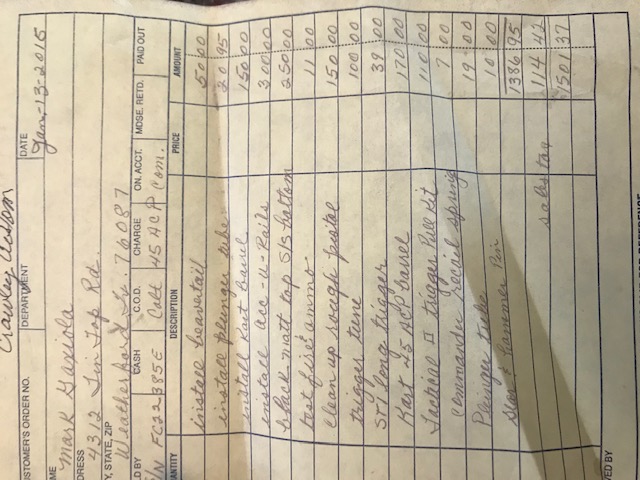 Crawley Custom
STOMER'S ORDER NO. DEPARTMENT DATE Jan-13-2015
ME Mark
DRESS 4312 Tin Top Rd.
Y, STATE, ZIP Weatherford Tx. 76087
D BY CASH C.O.D. CHARGE ON. ACCT. MDSE. RETD. PAID OUT
S/N FC22385E Colt 45 ACP Com.
ANTITY DESCRIPTION PRICE AMOUNT
install beavertail 50 00
install plunger tube 20 95
install Kart barrel 150 00
install acc-u-Rails 300 00
black matt top S/S bottom 250 00
test fire & ammo 11 00
Clean up rough pistol 150 00
trigger tune 100 00
STI long trigger 39 00
Kart 45 ACP barrel 170 00
Tactical II trigger Pull kit 110 00
Commander recoil spring 7 00
Plunger tube 19 00
& Hammer Pin 10 00
1386 95
sales tax 114 42
1501 37
VED BY